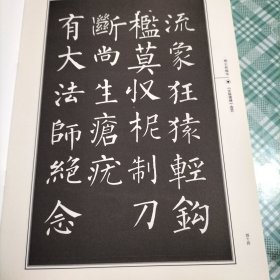 流象狂猿輕鈎
檻莫収柅制刀
斷尚生瘡疣
有大法師絕念